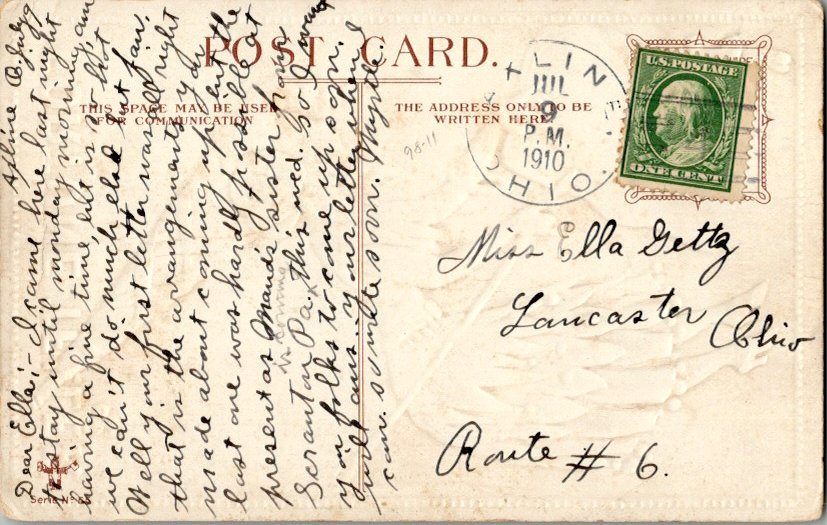 POST CARD.
THIS SPACE MAY BE USED
FOR COMMUNICATION
THE ADDRESS ONLY TO BE
WRITTEN HERE
TLIN
JUL
9
P.M.
1910
OHIO.
U.S. POSTAGE
ONE CENT
98-11
Miss Ella Gettz
Lancaster Ohio
Route # 6.
July 9
Dear Ella:- I came here last night
to stay until monday morning, am
having a fine time, but it is so hot
we can't do much else but fan.
Well your first letter was all right
that is the arrangements you
made about coming up but the
last one was hardly possible at
present as Maud's sister from
is coming
Scranton Pa. this wed. So I want
you folks to come up soon.
will ans. your letter when I
can. so write soon. Myrtle
Serie No.